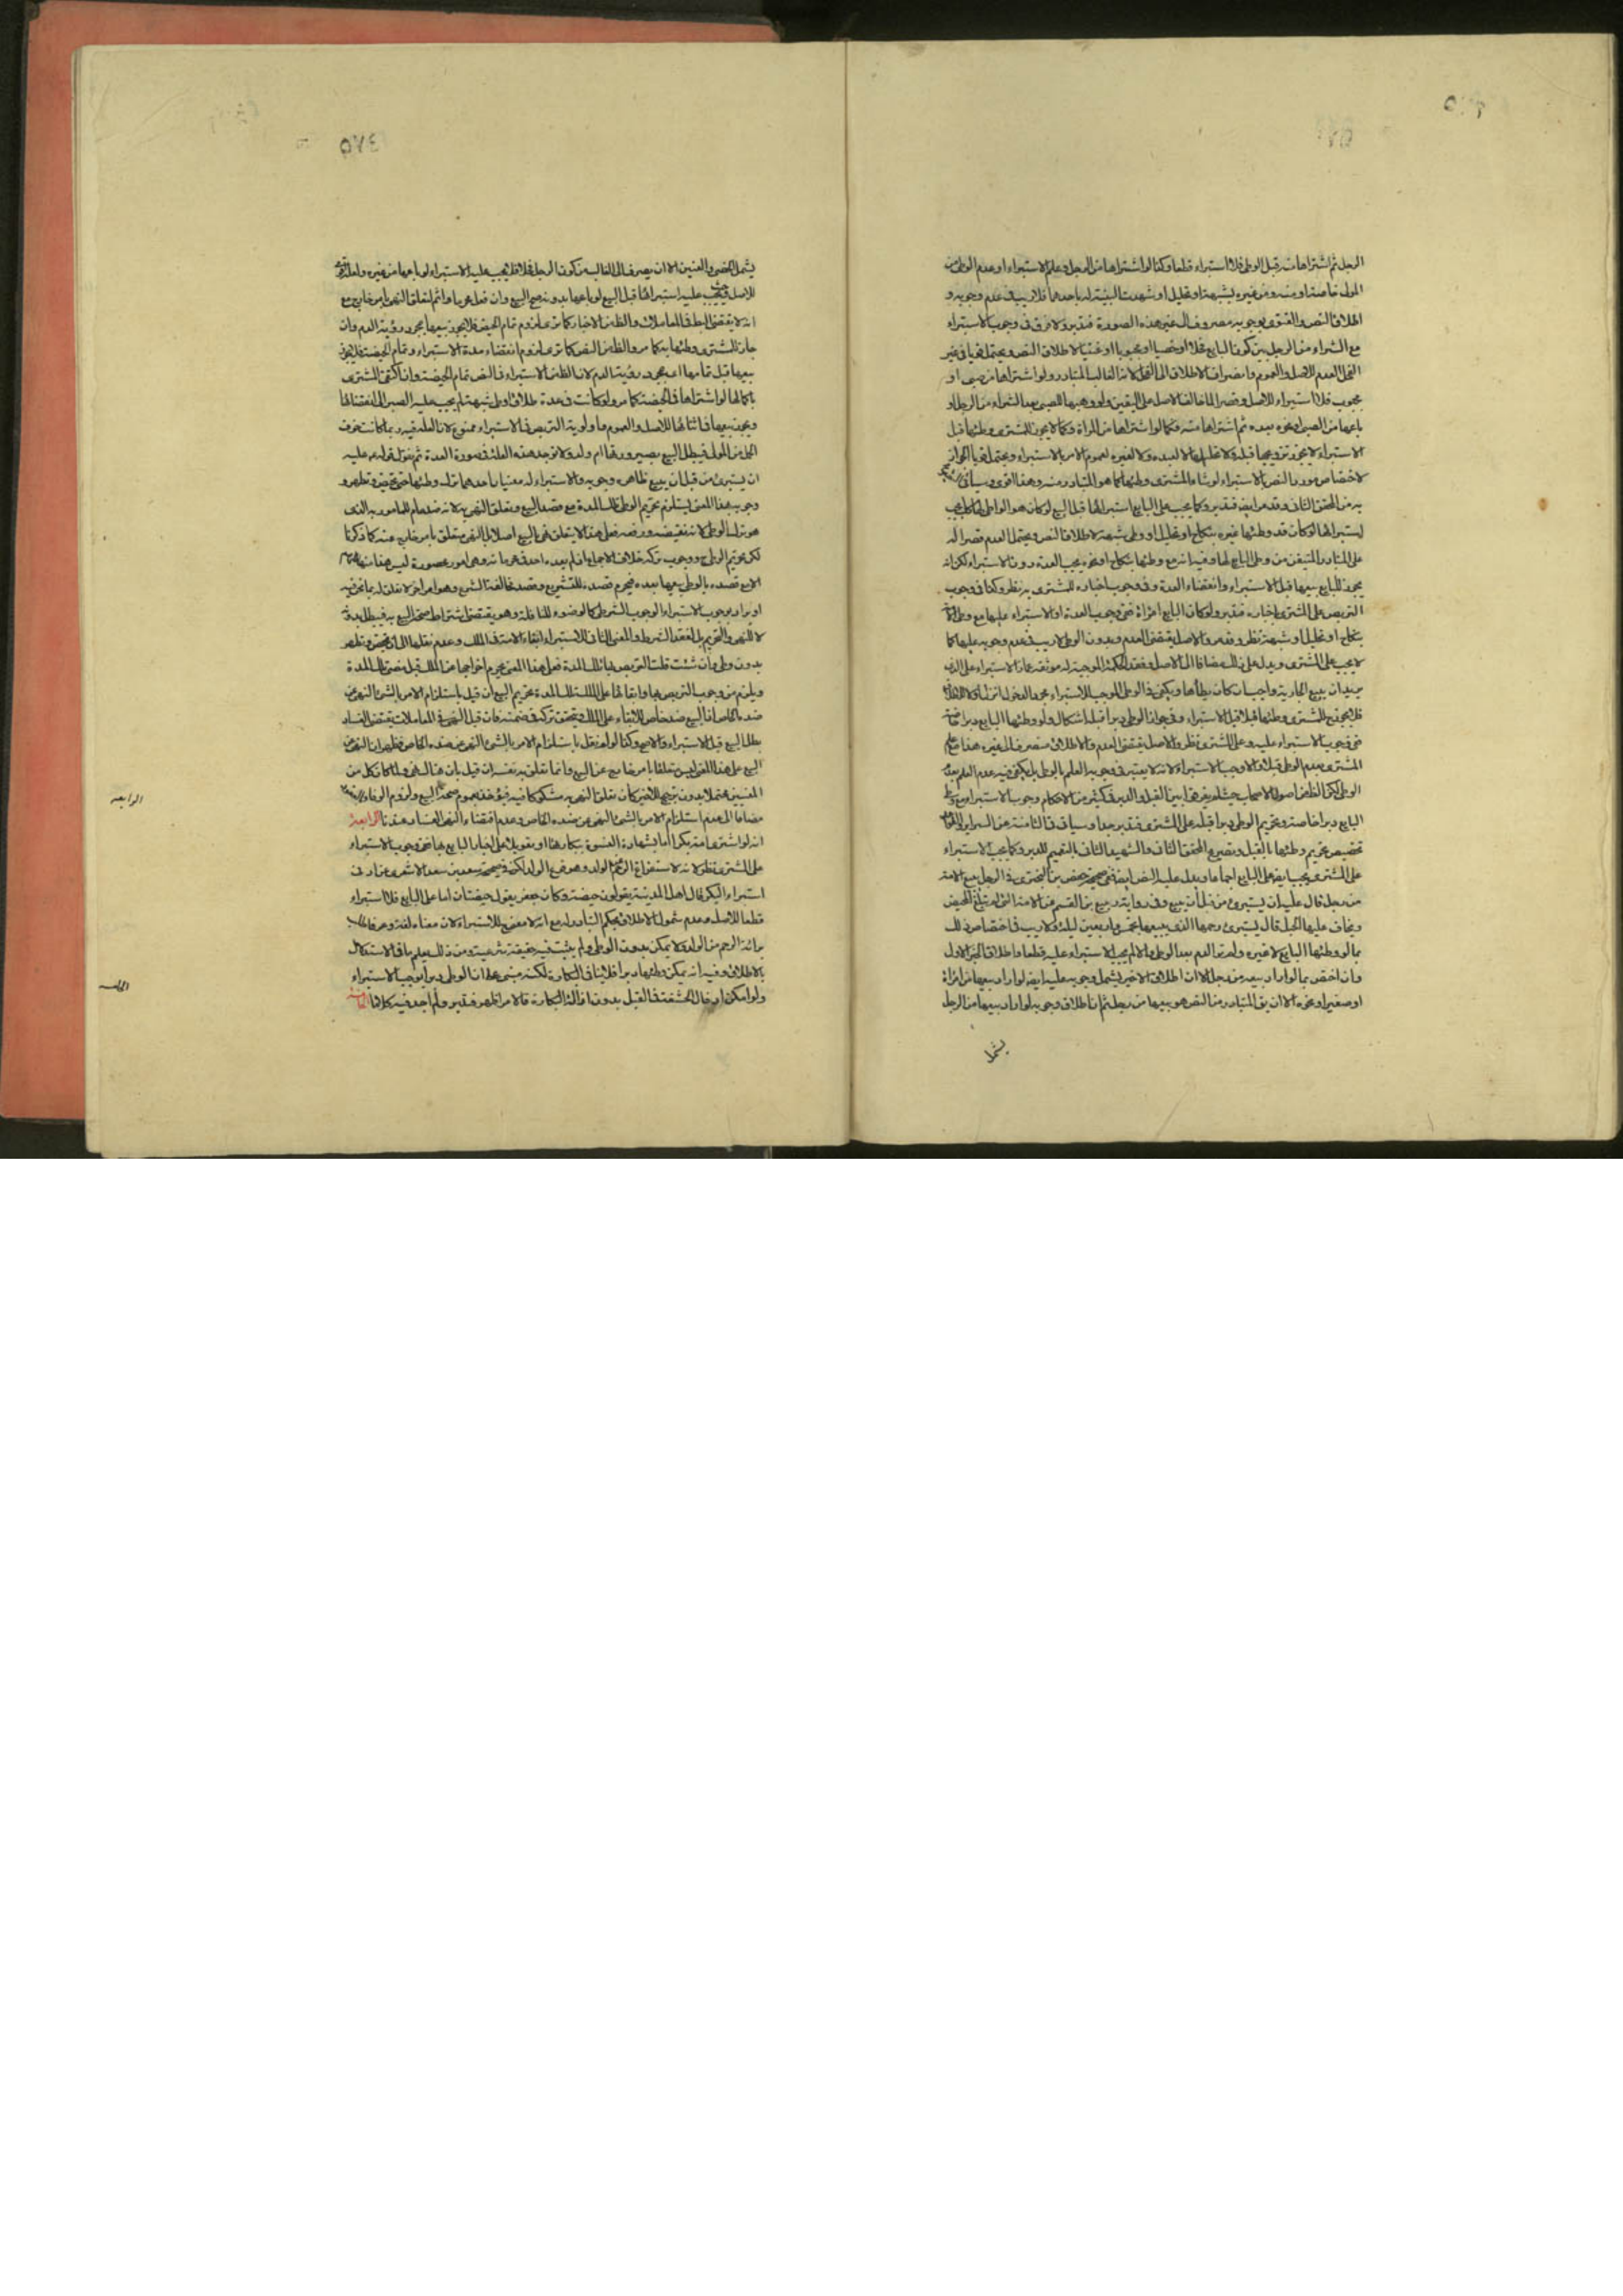 الرجل ثم اشتراها منه قبل الوطى فلا استبراء قطعا وكذا لو اشتراها من الرجل وعلم الاستبراء او عدم الوطى من
المولى خاصة او منه ومن غيره بشبهة او تحليل او شهدت البينة له باحدهما فلا ريب فى عدم وجوبه و
اطلاق النص والفتوى بوجوبه مصروف الى غير هذه الصورة فتدبر ولا فرق فى وجوب الاستبراء
مع الشراء من الرجل بين كون البايع فحلا او خصيا او مجبوبا او عنينا لاطلاق النص ويحتمل قويا فى غير
الفحل العدم للاصل والعموم وانصراف الاطلاق الى الفحل لانه الغالب المتبادر ولو اشتراها من صبى او
مجبوب فلا استبراء للاصل وقصر الما خالف الاصل على اليقين ولو وهبها للصبى بعد الشراء من الرجل او
باعها من الصبى او نحوه بعده ثم اشتراها منه فكما لو اشتراها من المراة وكما لا يجوز للمشترى وطئها قبل
الاستبراء لا يجوز تزويجها قبله ولا تحليلها لا لعبده ولا لغيره لعموم الامر بالاستبراء ويحتمل قويا الجواز
لاختصاص مورد النص بالاستبراء لوشاء المشترى وطئها كما هو المتبادر منه وهذا اقوى وسياتى
به من المحقق الثانى وقد مر ايضا فتدبر وكما يجب على البايع استبرائها قبل البيع لو كان هو الواطى لها كذا يجب
استبرائها لو كان قد وطئها غيره بنكاح او تحليل او وطى شبهة لاطلاق النص ويحتمل العدم قصرا له
على المتبادر المتيقن من وطى البايع لها وفيه انه مع وطئها بنكاح او نحوه يجب العدة دون الاستبراء لكن انه
يجوز للبايع بيعها قبل الاستبراء وانقضاء العدة وفى وجوب اخباره للمشترى به نظر وكذا فى وجوب
التربص على المشترى باخباره فتدبر ولو كان البايع امراة ففى وجوب العدة او الاستبراء عليها مع وطى
بنكاح او تحليل او شبهة نظر وقد مر والاصل يقتضى العدم وبدون الوطى لا ريب فى عدم وجوبه عليها كما
لا يجب على المشترى ويدل على ذلك مضافا الى الاصل وفقد الحكمة الموجبة له موثقة عمار الاستبراء على الذى
يريد ان يبيع الجارية واجب ان كان يطأها ويكفى فى الوطى الموجب للاستبراء مجرد الدخول انزل او لا
فلا يجوز للمشترى وطئها قبلا قبل الاستبراء وفى جواز الوطى دبرا قبله اشكال ولو وطئها البايع دبرا خاصة
ففى وجوب الاستبراء عليه وعلى المشترى نظر والاصل يقتضى العدم والاطلاق منصرف الى غيره هذا مع علم
المشترى بعدم الوطى قبلا والا وجب الاستبراء لانه لا يعتبر فى وجوبه العلم بالوطى بل يكفى فيه عدم العلم بعدم
الوطى لكن الظاهر من اصول الاصحاب حيث لم يفرقوا بين القبل والدبر فى كثير من الاحكام وجوب الاستبراء مع وطى
البايع دبرا خاصة وتحريم الوطى دبرا قبله على المشترى فتدبر جدا وسياتى فى الثامنة عن السراير
تخصيص تحريم وطئها بالقبل وتصريح المحقق الثانى والشهيد الثانى بالتعميم للدبر وكما يجب الاستبراء
على المشترى يجب ايضا على البايع اجماعا ويدل عليه النص ايضا ففى صحيحة حفص بن البخترى فى الرجل يبيع الامة
من رجل قال عليه ان يستبرئ من قبل ان يبيع وفى رواية ربيع بن القسم عن الامة التى لم تبلغ المحيض
ويخاف عليها الحبل قال يستبرئ رحمها الذى يبيعها بخمس واربعين ليلة ولا ريب فى اختصاص ذلك
بما لو وطئها البايع لا غيره ولم تر الدم بعد الوطى والا لم يجب الاستبراء عليه قطعا واطلاق الخبر الاول
وان اختص بما لو اراد بيعه من رجل الا ان اطلاق الاخير يشمل وجوبه عليه ايضا لو اراد بيعها من امراة
او صغير او نحوه الا ان يق المتبادر من النص هو بيعها من رجل ثم ان اطلاق وجوبه لو اراد بيعها من الرجل
يشمل
٣٨٥
يشمل الخصى والعنين الا ان يصرف الى الغالب من كون الرجل فحلا فلا يجب عليه الاستبراء لو باعها من غيره
للاصل فيجب عليه استبرائها قبل البيع لو باعها بدونه صح البيع وان فعل محرما واثم لتعلق النهى بامر خارج مع
انه لا يقتضى البطلان فى المعاملات والظاهر من الاخبار كما ترى لزوم تمام الحيض فلا يجوز بيعها بمجرد رؤية الدم وان
جاز للمشترى وطئها به كما مر والظاهر من النص كما ترى لزوم انقضاء مدة الاستبراء وتمام الحيضة فلا يجوز
بيعها قبل تمامها اعنى بمجرد رؤية الدم لان الظاهر من الاستبراء فى النص تمام الحيضة وان اكتفى المشترى
باكمالها لو اشتراها فى الحيضة كما مر ولو كانت فى عدة طلاق او وطى شبهة لم يجب عليه الصبر الى انقضائها
ويجوز بيعها فى اثنائها للاصل والعموم واولوية التربص فى الاستبراء ممنوع لان العلة فيه ربما كانت خوف
الحمل من المولى فيبطل البيع بصيرورتها ام ولد ولا توجد هذه العلة فى صورة العدة ثم نقول قوله ع عليه
ان يستبرئ من قبل ان يبيع ظاهره وجوبه والاستبراء له معنيان احدهما ترك وطئها حتى تحيض وتطهر و
وجوب هذا المعنى يستلزم تحريم الوطى فى تلك المدة مع قصد البيع وتعلق النهى به لانه ضد عام للمامور به الذى
هو ترك الوطى لانه نقيضه ورفعه فعلى هذا لا يتعلق نهى بالبيع اصلا بل النهى متعلق بامر خارج عنه كما ذكرنا
لكن تحريم الوطى ح ووجوب تركه خلاف الاجماع
الا مع قصده بالوطى بيعها بعده فيحرم قصده للتشريع وقصد مخالفة الشرع وهو امر اخر لا تعلق له بما نحن فيه
او يراد بوجوب الاستبراء الوجوب الشرطى كالوضوء للنافلة وهو يقتضى اشتراط صحة البيع به فيبطل بدونه
لا للنهى والتحريم بل لفقد الشرط والمعنى الثانى للاستبراء ابقاء الامة فى الملك وعدم نقلها الى ان تحيض وتطهر
بدون وطى وان شئت قلت التربص بها تلك المدة فعلى هذا المعنى يحرم اخراجها عن الملك قبل مضى تلك المدة
ويلزم من وجوب التربص بها وابقائها على الملك تلك المدة تحريم البيع ان قيل باستلزام الامر بالشئ النهى عن
ضده الخاص اذ البيع ضد خاص للابقاء على الملك وتحقق تركه فى ضمنه فان قيل النهى فى المعاملات يقتضى الفساد
بطل البيع قبل الاستبراء والا صح وكذا لو لم نقل باستلزام الامر بالشئ النهى عن ضده الخاص فظهر ان النهى عن
البيع على هذا المعنى ليس متعلقا بامر خارج عن البيع وانما تعلق به نفسه ان قيل بان هنا لك نهى ولما كان كل من
المعنيين محتملا بدون ترجيح للاخير كان تعلق النهى به مشكوكا فيه فيؤخذ بعموم صحة البيع ولزوم الوفاء
مضافا الى عدم استلزام الامر بالشئ النهى عن ضده الخاص وعدم اقتضاء النهى الفساد عندنا الرابعة
انه لو اشترى امة بكرا اما بشهادة النسوة ببكارتها او تعويلا على اخبار البايع بها ففى وجوب الاستبراء
على المشترى نظر لانه لاستفراغ الرحم من الولد وهو فرع الولد لكن فى صحيحة سعد بن سعد الاشعرى عن ادنى
استبراء البكر قال اهل المدينة يقولون حيضة وكان جعفر يقول حيضتان اما على البايع فلا استبراء
قطعا للاصل وعدم شمول الاطلاق بحكم التبادر له مع انه لا معنى للاستبراء لان معناه لغة وعرفا طلب
برائة الرحم من الولد ولا يمكن بدون الوطى ولم يثبت فيه حقيقة شرعية ومن ذلك يعلم ما فى الاستدلال
بالاطلاق وفيه انه يمكن وطئها دبرا فلا ينافى البكارة لكنه مبنى على ان الوطى دبرا يوجب الاستبراء
ولو امكن ادخال الحشفة فى القبل بدون ازالة البكارة فالامر اظهر فتدبر ولم اجد فيه كلاما الخامسة
الرابعه
الخامسه